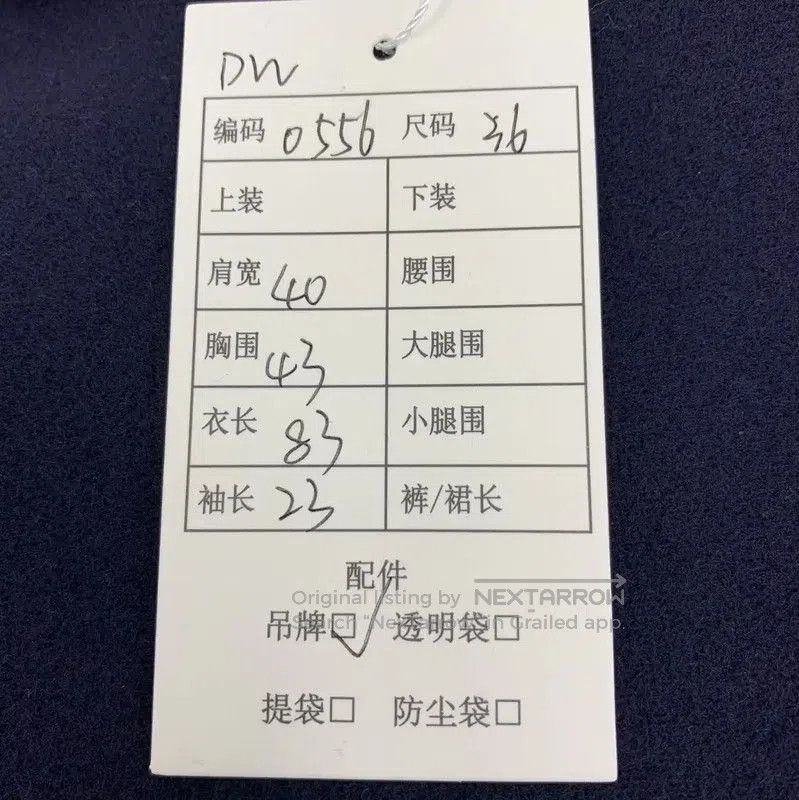 DW
编码 0556 尺码 36
上装 下装
肩宽 40 腰围
胸围 43 大腿围
衣长 83 小腿围
袖长 23 裤/裙长
配件
Original listing by NEXTARROW
Search "Nextarrow" in Grailed app.
吊牌☑ 透明袋□
提袋□ 防尘袋□